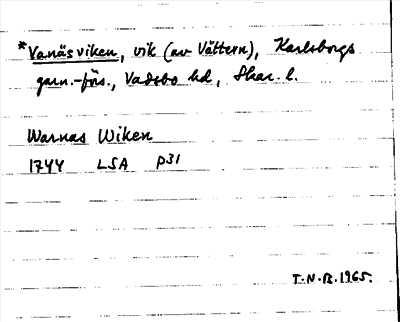 *Vanäsviken, vik (av Vättern), Karlsborgs
garn.-förs., Vadsbo hd, Skar. l.
Warnas Wiken
1744 LSA P31
T.N.B. 1965.